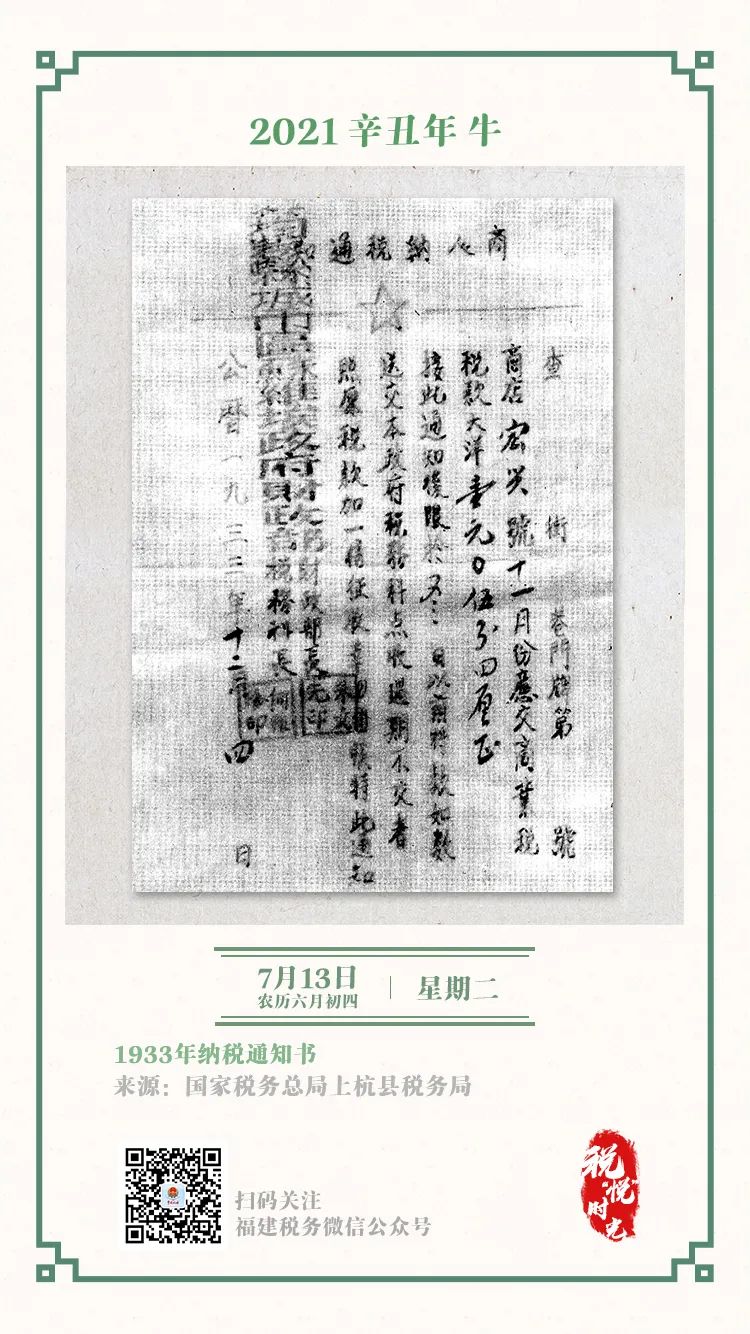 2021 辛丑年 牛
商人納税通知
查 街 巷門牌第 號
商店宏兴號十一月份應交商業税
税款大洋壹元0伍分四厘正
接此通知後限於 日以前將款如數
送交本政府税務科点收過期不交者
照原税款加一倍征收 特此通知
財政部長
税務科長
公曆一九三三年十二月四日
7月13日
农历六月初四
星期二
1933年纳税通知书
来源：国家税务总局上杭县税务局
扫码关注
福建税务微信公众号
税
“悦”
时
光